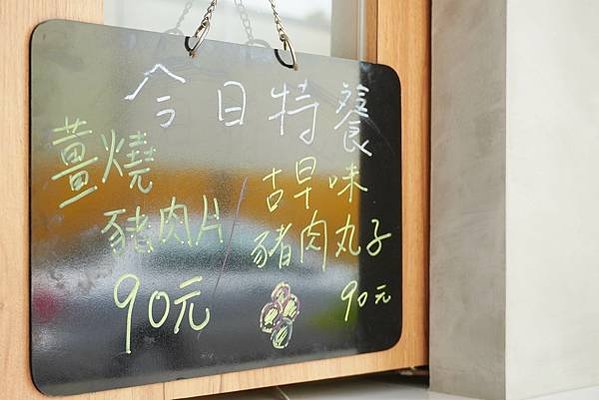 今日特餐
薑燒
豬肉片
90元
古早味
豬肉丸子
90元